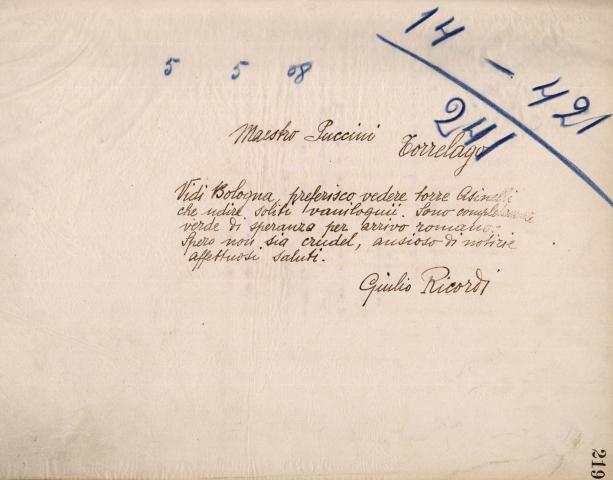 14 - 421
241
5 5 08
Maestro Puccini
Torrelago
Vidi Bologna, preferisco vedere torre Asinelli
che udire soliti vaniloquii. Sono completamente
verde di speranza per arrivo romano.
Spero non sia crudel, ansioso di notizie
affettuosi saluti.
Giulio Ricordi
219